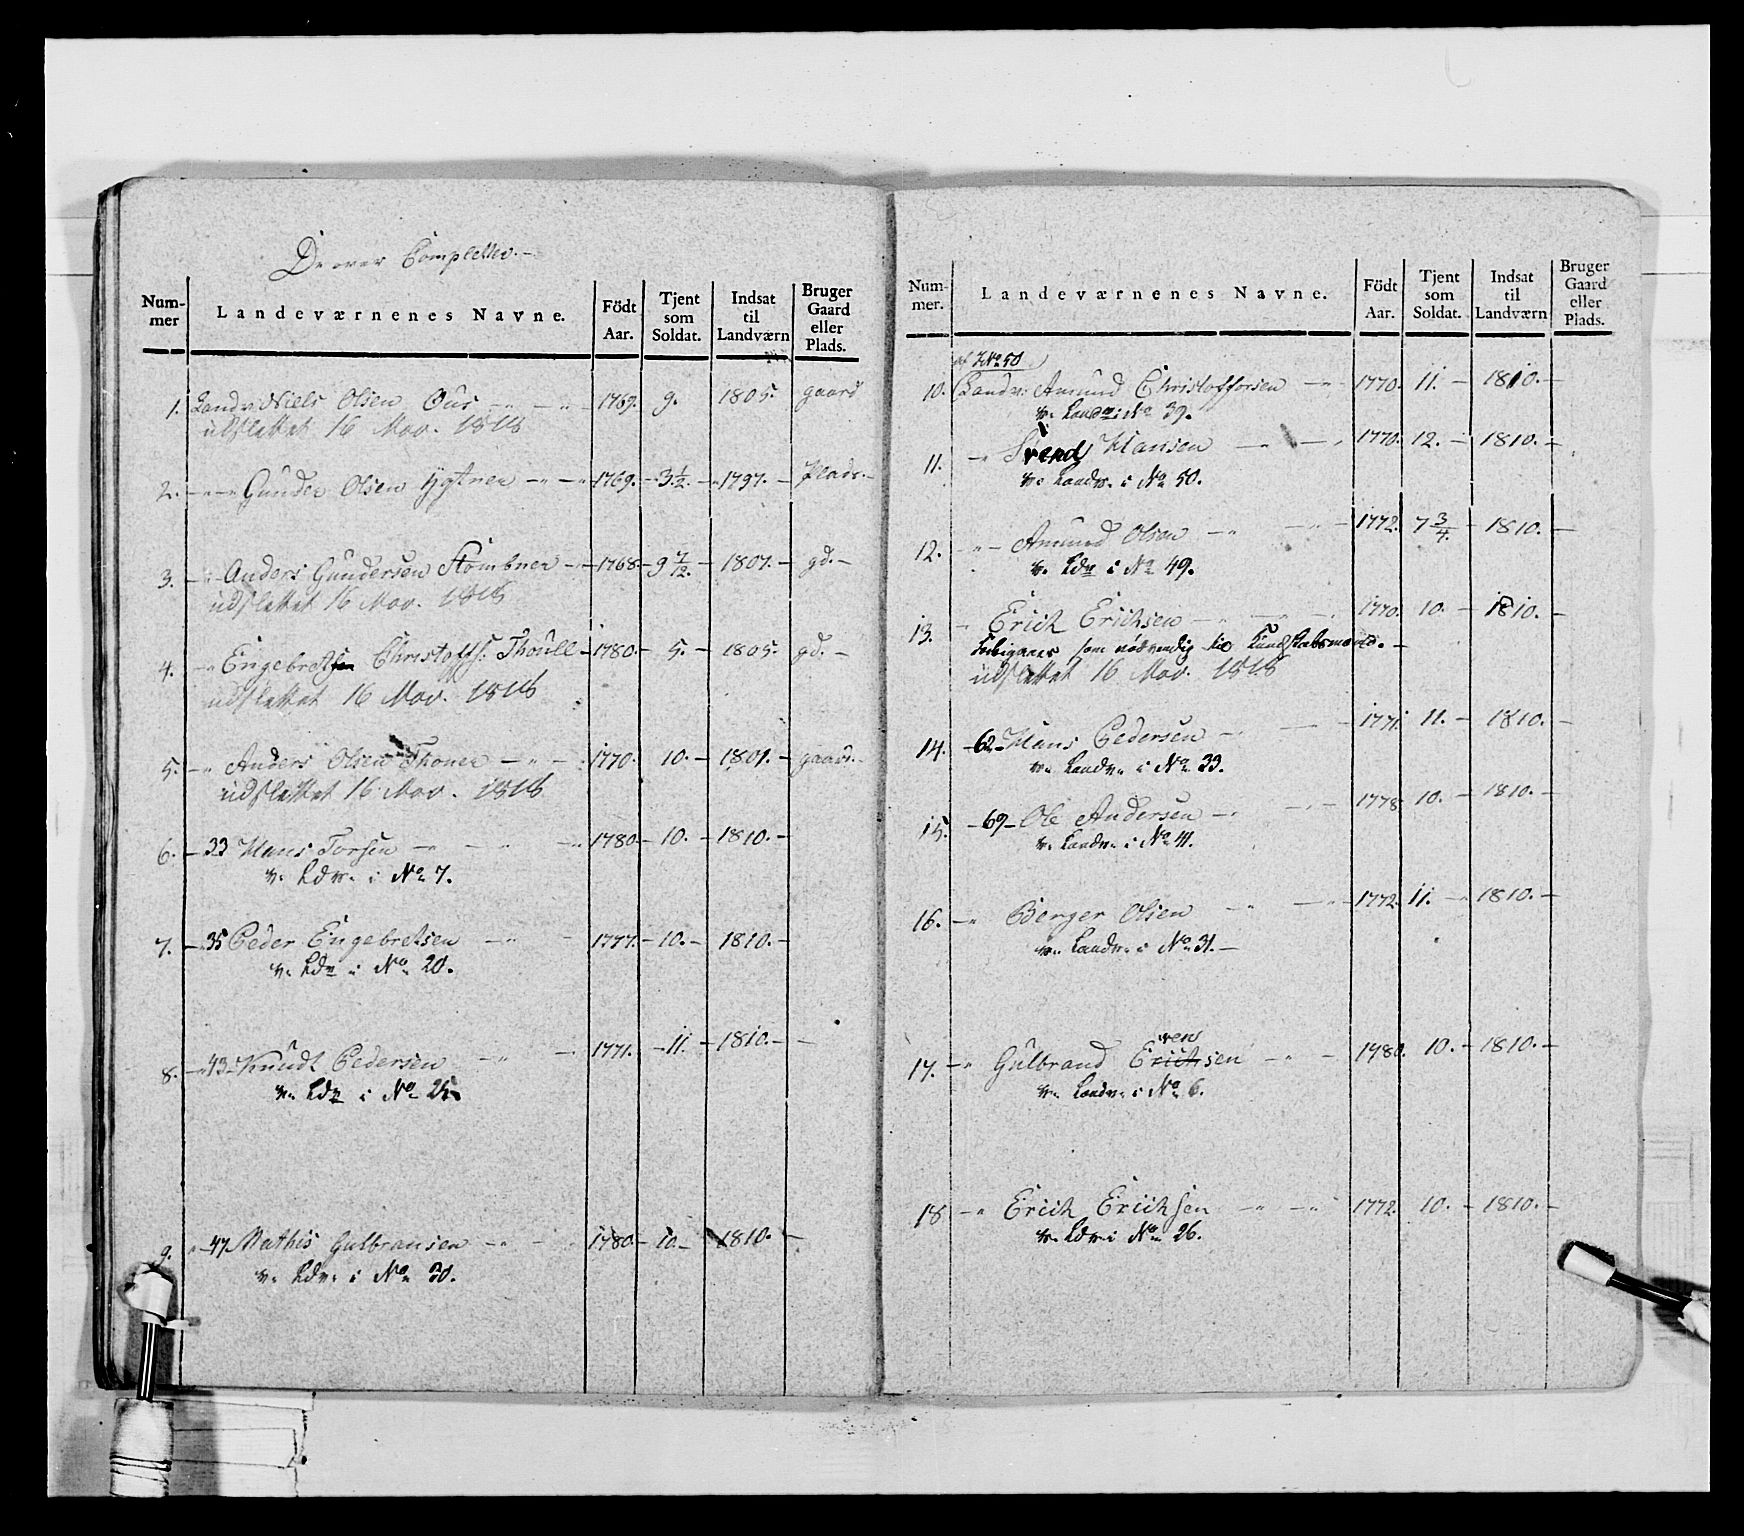 De over Complette.
Num-mer Landeværnenes Navne. Födt Aar. Tjent som Soldat. Indsat til Landværn Bruger Gaard eller Plads.
1. Landv: Niels Olsen Ous 1769. 9. 1805. gaard
udslettet 16 Mov. 1818
2. Gunder Olsen 1769. 3 1/2. 1797. Plads.
3. Anders Gundersen 1768. 9 7/12. 1807. gd.
udslettet 16 Mov. 1818
4. Engebretsen Christoffs: 1780. 5. 1805. gd.
udslettet 16 Mov. 1818
5. Anders Olsen Thoner 1770. 10. 1801. gaard.
udslettet 16 Mov. 1818
6. 33 Hans Torsen 1780. 10. 1810.
v. Ldv. i No 7.
7. 35 Peder Engebretsen 1777. 10. 1810.
v. Ldv i No 20.
8. 43 Knudt Pedersen 1771. 11. 1810.
v. Ldv i No 25.
9. 47 Mathis Gulbransen 1780. 10. 1810.
v. Ldv. i No 30.
Num-mer. Landeværnenes Navne. Födt Aar. Tjent som Soldat. Indsat til Landværn Bruger Gaard eller Plads.
No 50
10. Landv: Amund Christoffersen 1770. 11. 1810.
v. Landv: i No 39.
11. Svend Hansen 1770. 12. 1810.
v. Landv. i No 50.
12. Amund Olsen 1772. 7 3/4. 1810.
v. Ldv i No 49.
13. Erich Erichsen 1770. 10. 1810.
som nödvendig
udslettet 16 Mov. 1818
14. 62 Hans Pedersen 1771. 11. 1810.
v. Landv. i No 33.
15. 69 Ole Andersen 1778. 10. 1810.
v. Landv. i No 41.
16. Berger Olsen 1772. 11. 1810.
v. Landv. i No 31.
ven
17. Gulbrand Erichsen 1780. 10. 1810.
v. Landv. i No 6.
18 Erich Erichsen 1772. 10. 1810.
v. Ldv i No 26.